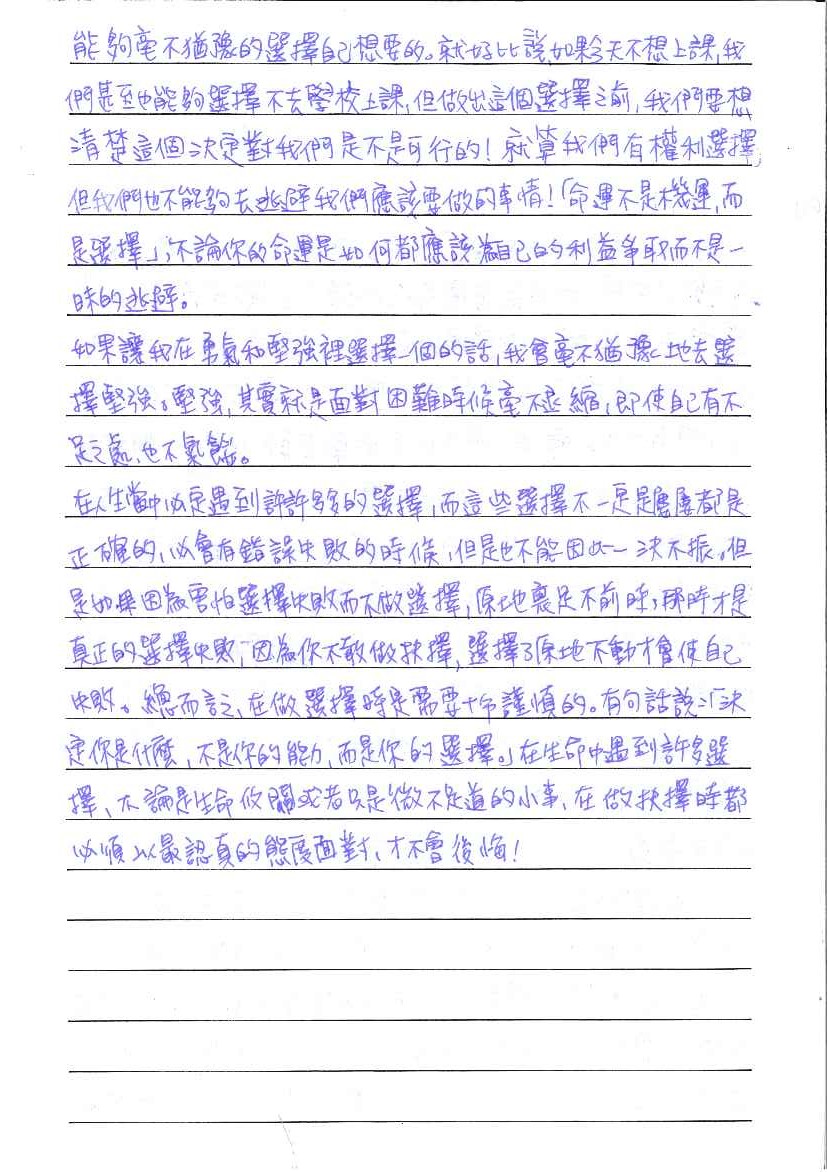 能夠毫不猶豫的選擇自己想要的。就好比說如果今天不想上課,我
們甚至也能夠選擇不去學校上課,但做出這個選擇之前,我們要想
清楚這個決定對我們是不是可行的!就算我們有權利選擇,
但我們也不能夠去逃避我們應該要做的事情!「命運不是機運,而
是選擇」,不論你的命運是如何都應該為自己的利益爭取而不是一
昧的逃避。
如果讓我在勇氣和堅強裡選擇一個的話,我會毫不猶豫地去選
擇堅強。堅強,其實就是面對困難時候毫不退縮,即使自己有不
足之處,也不氣餒。
在人生當中必定遇到許許多多的選擇,而這些選擇不一定是屢屢都是
正確的,必會有錯誤失敗的時候,但是也不能因此一決不振。但
是如果因為害怕選擇失敗而不做選擇,原地裹足不前時,那時才是
真正的選擇失敗,因為你不敢做抉擇,選擇了原地不動才會使自己
失敗。總而言之,在做選擇時是需要十分謹慎的。有句話說:「決
定你是什麼,不是你的能力,而是你的選擇。」在生命中遇到許多選
擇、不論是生命攸關或者只是微不足道的小事、在做抉擇時都
必須以最認真的態度面對、才不會後悔!